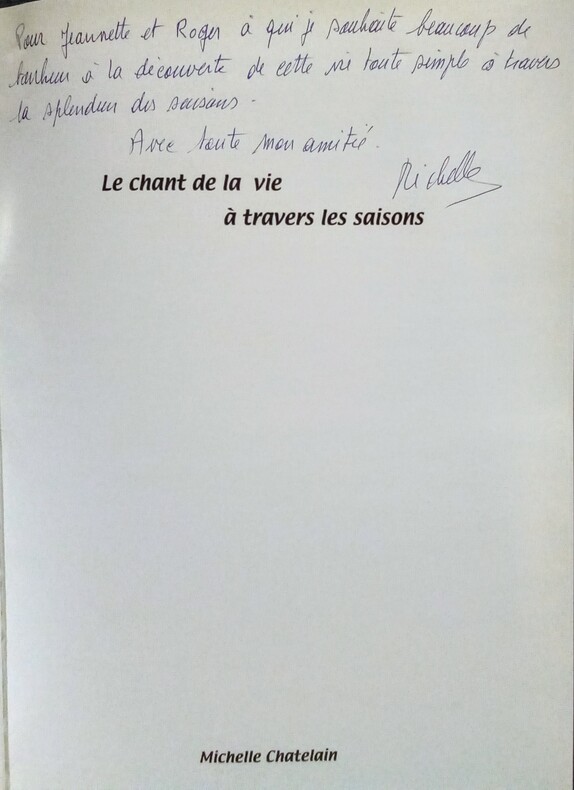 Pour Jeannette et Roger à qui je souhaite beaucoup de
bonheur à la découverte de cette vie toute simple à travers
la splendeur des saisons.
Avec toute mon amitié.
Michelle
Le chant de la vie
à travers les saisons
Michelle Chatelain